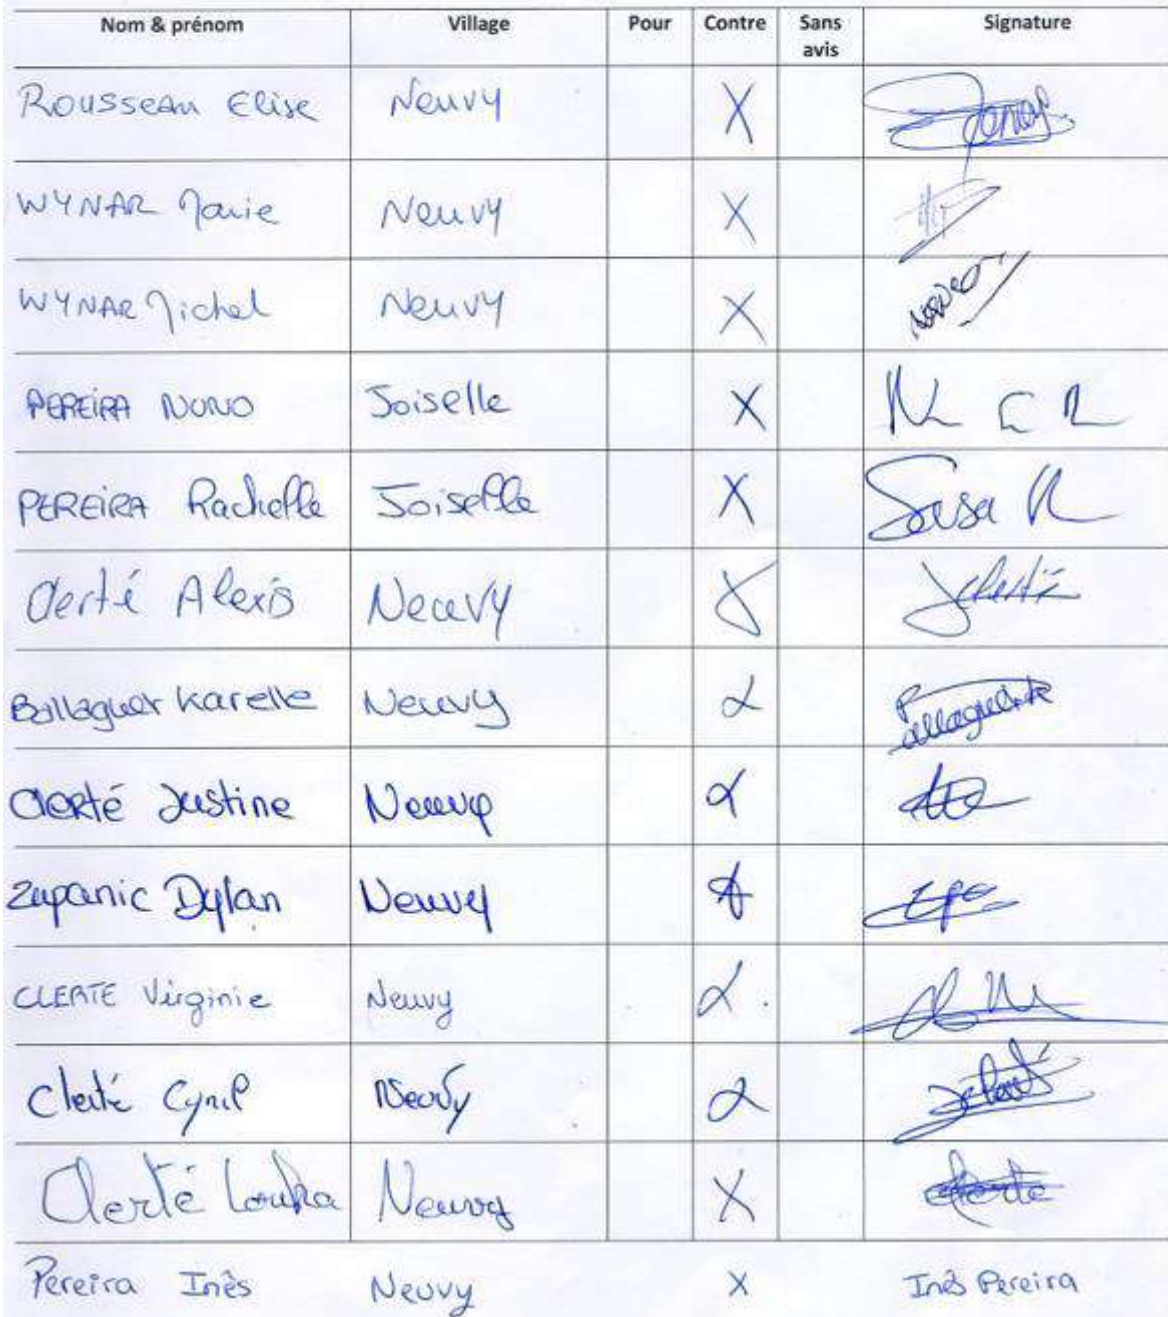 Nom & prénom Village Pour Contre Sans avis Signature
Rousseau Elise Neuvy X
WYNAR Marie Neuvy X
WYNAR Michel Neuvy X
PEREIRA NUNO Joiselle X
PEREIRA Rachelle Joiselle X Sousa R
Clerté Alexis Neuvy X Clerté
Ballaguer Karelle Neuvy X
Clerté Justine Neuvy X
Zupanic Dylan Neuvy X
CLERTE Virginie Neuvy X
Clerté Cyril Neuvy X
Clerté Louka Neuvy X Clerté
Pereira Inês Neuvy X Inês Pereira